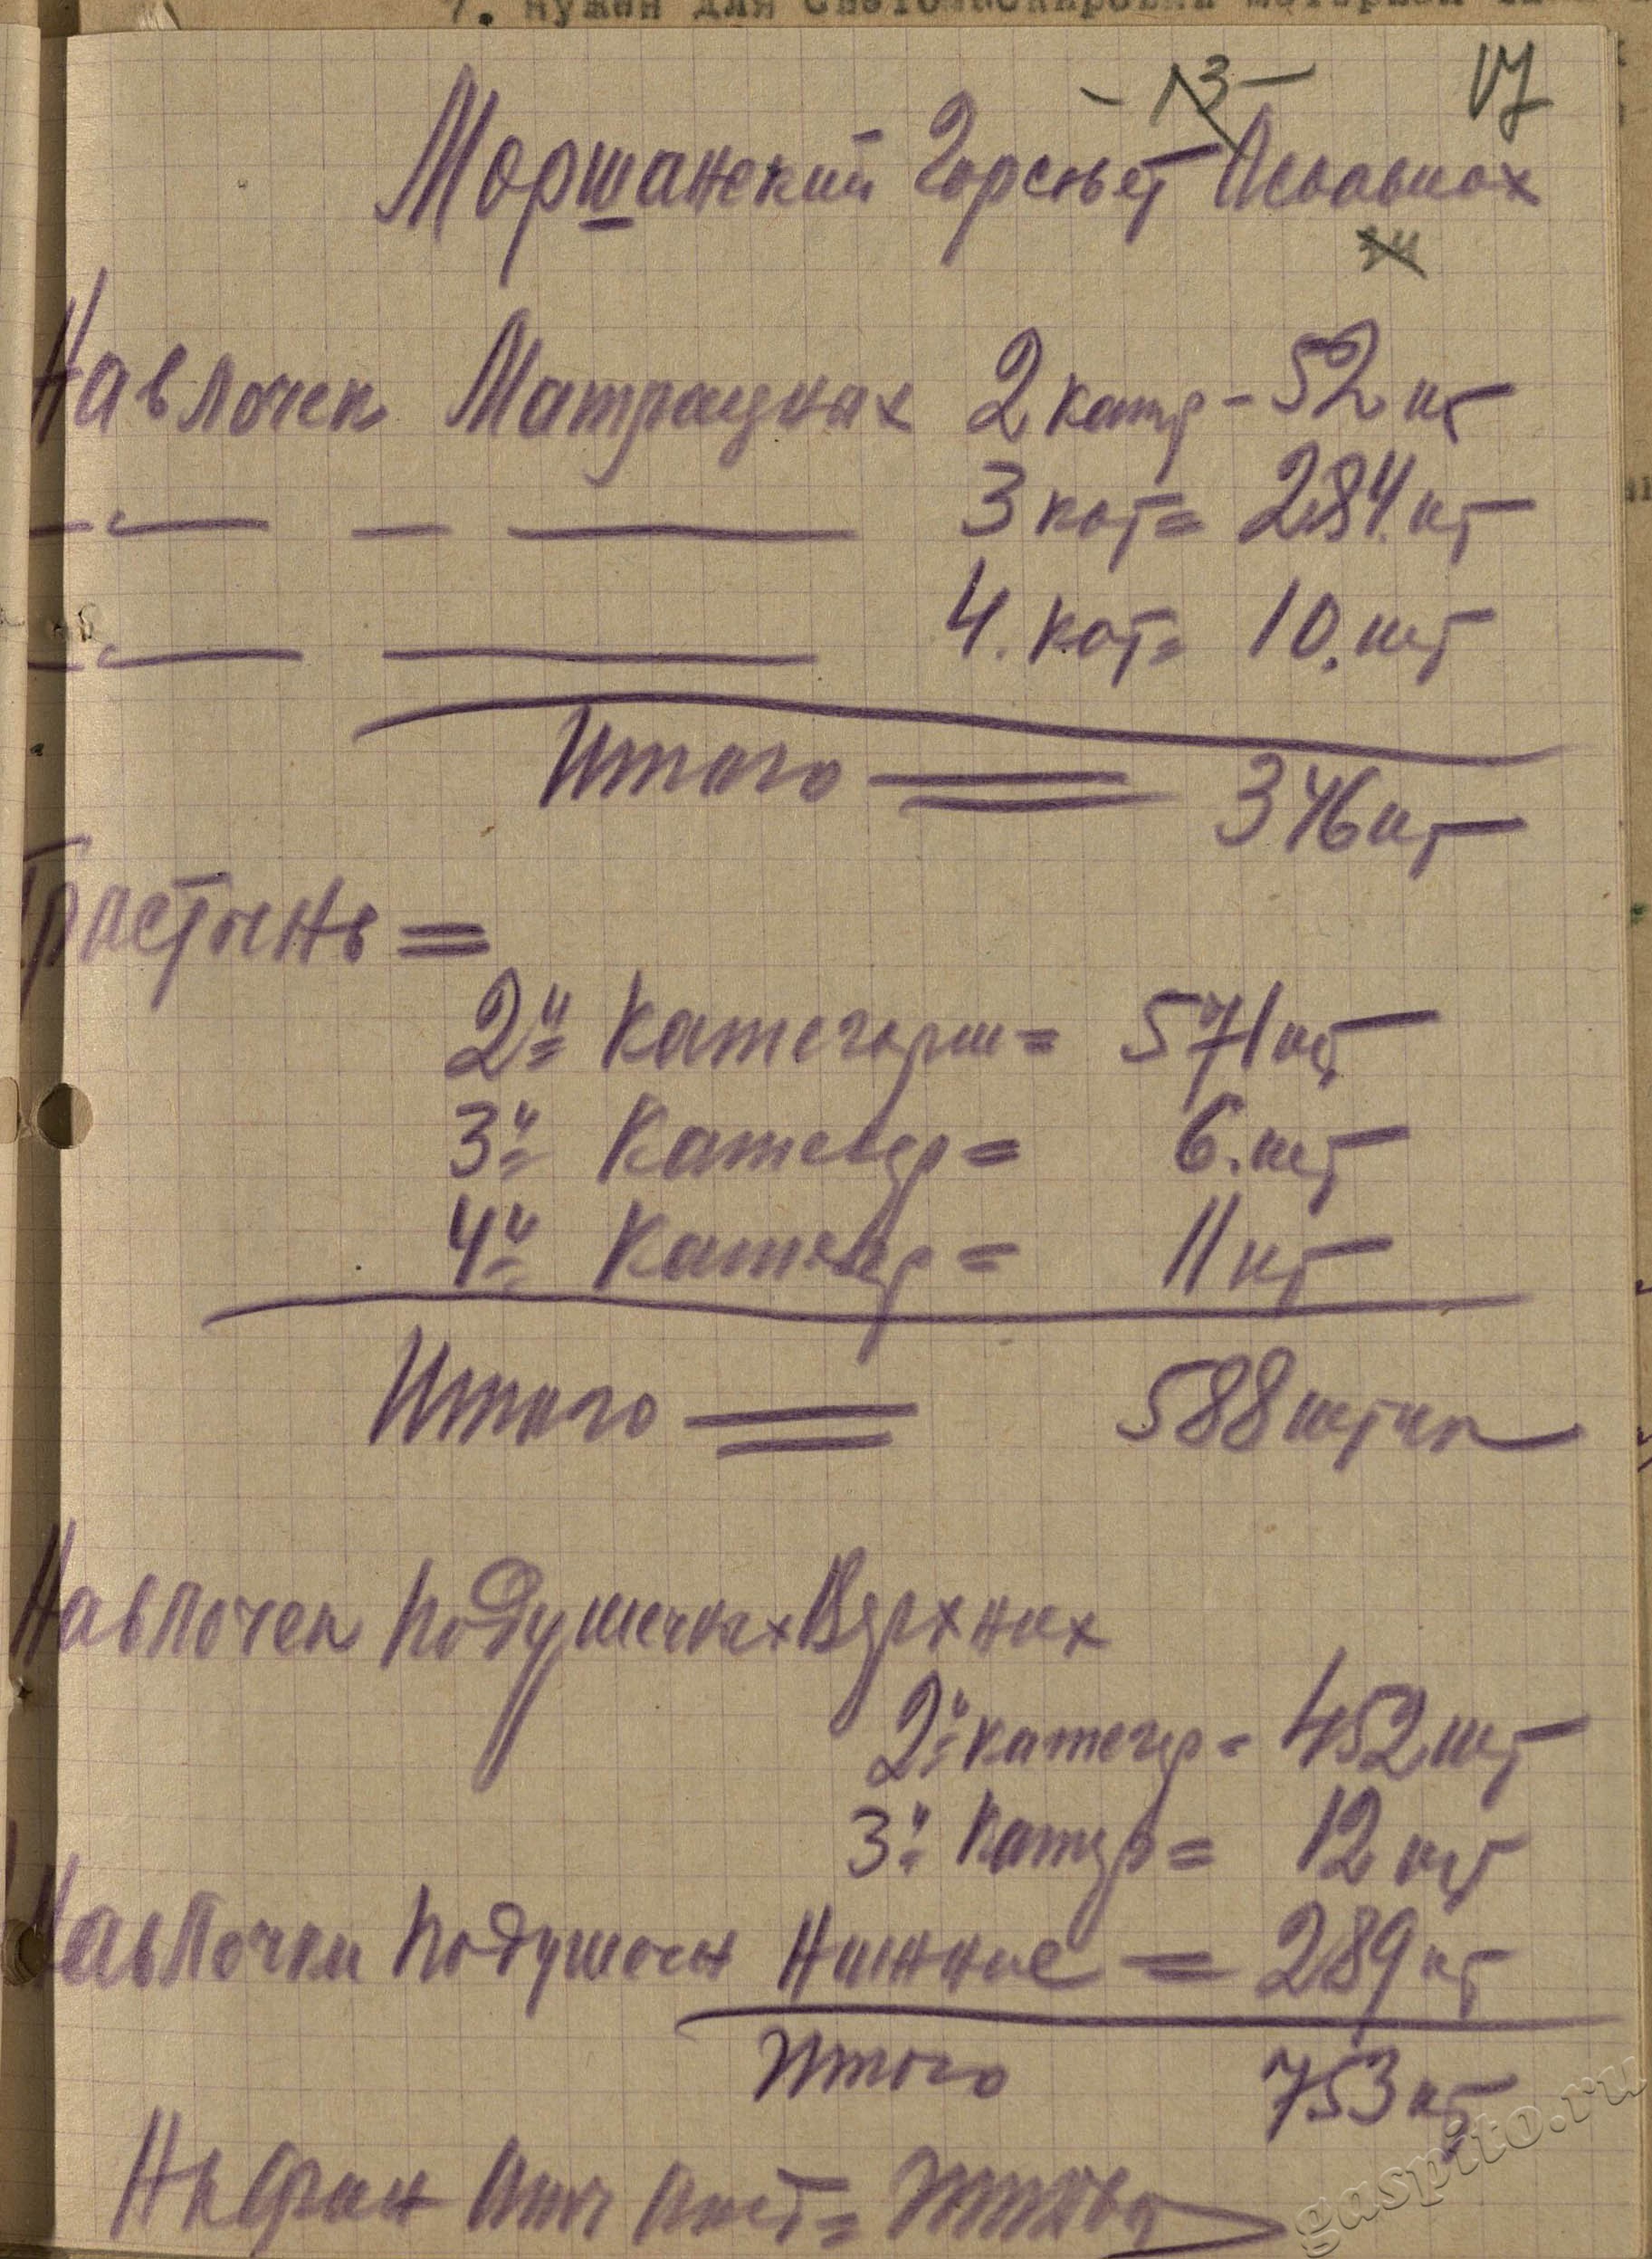 7. нужен для светомаскировки материал
- 13 - 17
Моршанский Горсовет
Навлочек Матрацных 2 катг - 52 шт
3 кат = 284 шт
4. кат = 10. шт
Итого = 346 шт
Простынь =
2й Категории = 571 шт
3й Категор = 6. шт
4й Категор = 11 шт
Итого = 588 штук
Навлочек Подушечных Верхних
2й категор - 452 шт
3й Катгр = 12 шт
Навлочки Подушочн Нижние = 289 шт
Итого 753 шт
gaspito.ru